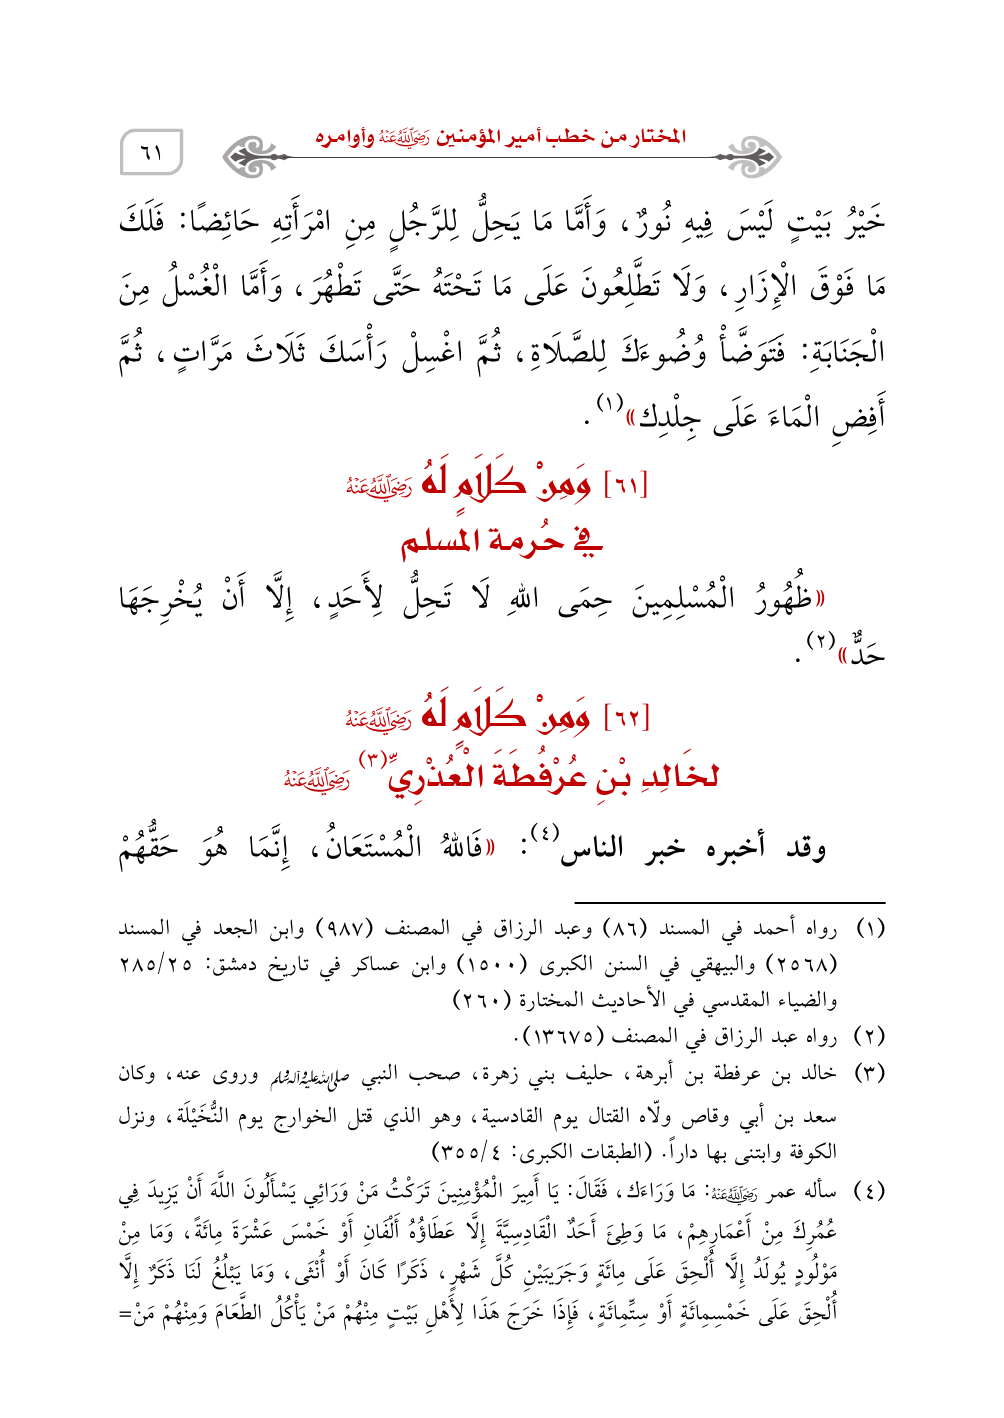 المختار من خطب أمير المؤمنين رَضِيَ اللَّهُ عَنْهُ وأوامره
٦١
خَيْرُ بَيْتٍ لَيْسَ فِيهِ نُورٌ، وَأَمَّا مَا يَحِلُّ لِلرَّجُلِ مِنِ امْرَأَتِهِ حَائِضًا: فَلَكَ
مَا فَوْقَ الْإِزَارِ، وَلَا تَطَّلِعُونَ عَلَى مَا تَحْتَهُ حَتَّى تَطْهُرَ، وَأَمَّا الْغُسْلُ مِنَ
الْجَنَابَةِ: فَتَوَضَّأْ وُضُوءَكَ لِلصَّلَاةِ، ثُمَّ اغْسِلْ رَأْسَكَ ثَلَاثَ مَرَّاتٍ، ثُمَّ
أَفِضِ الْمَاءَ عَلَى جِلْدِك»(١).
[٦١] وَمِنْ كَلَامٍ لَهُ رَضِيَ اللَّهُ عَنْهُ
في حُرمة المسلم
«ظُهُورُ الْمُسْلِمِينَ حِمَى اللهِ لَا تَحِلُّ لِأَحَدٍ، إِلَّا أَنْ يُخْرِجَهَا
حَدٌّ»(٢).
[٦٢] وَمِنْ كَلَامٍ لَهُ رَضِيَ اللَّهُ عَنْهُ
لخَالِدِ بْنِ عُرْفُطَةَ الْعُذْرِيِّ(٣) رَضِيَ اللَّهُ عَنْهُ
وقد أخبره خبر الناس(٤): «فَاللهُ الْمُسْتَعَانُ، إِنَّمَا هُوَ حَقُّهُمْ
(١) رواه أحمد في المسند (٨٦) وعبد الرزاق في المصنف (٩٨٧) وابن الجعد في المسند
(٢٥٦٨) والبيهقي في السنن الكبرى (١٥٠٠) وابن عساكر في تاريخ دمشق: ٢٨٥/٢٥
والضياء المقدسي في الأحاديث المختارة (٢٦٠)
(٢) رواه عبد الرزاق في المصنف (١٣٦٧٥).
(٣) خالد بن عرفطة بن أبرهة، حليف بني زهرة، صحب النبي صلى الله عليه وآله وسلم وروى عنه، وكان
سعد بن أبي وقاص ولّاه القتال يوم القادسية، وهو الذي قتل الخوارج يوم النُّخَيْلَة، ونزل
الكوفة وابتنى بها داراً. (الطبقات الكبرى: ٣٥٥/٤)
(٤) سأله عمر رَضِيَ اللَّهُ عَنْهُ: مَا وَرَاءَك، فَقَالَ: يَا أَمِيرَ الْمُؤْمِنِينَ تَرَكْتُ مَنْ وَرَائِي يَسْأَلُونَ اللَّهَ أَنْ يَزِيدَ فِي
عُمُرِكَ مِنْ أَعْمَارِهِمْ، مَا وَطِئَ أَحَدٌ الْقَادِسِيَّةَ إِلَّا عَطَاؤُهُ أَلْفَانِ أَوْ خَمْسَ عَشْرَةَ مِائَةً، وَمَا مِنْ
مَوْلُودٍ يُولَدُ إِلَّا أُلْحِقَ عَلَى مِائَةٍ وَجَرِيبَيْنِ كُلَّ شَهْرٍ، ذَكَرًا كَانَ أَوْ أُنْثَى، وَمَا يَبْلُغُ لَنَا ذَكَرٌ إِلَّا
أُلْحِقَ عَلَى خَمْسِمِائَةٍ أَوْ سِتِّمِائَةٍ، فَإِذَا خَرَجَ هَذَا لِأَهْلِ بَيْتٍ مِنْهُمْ مَنْ يَأْكُلُ الطَّعَامَ وَمِنْهُمْ مَنْ=